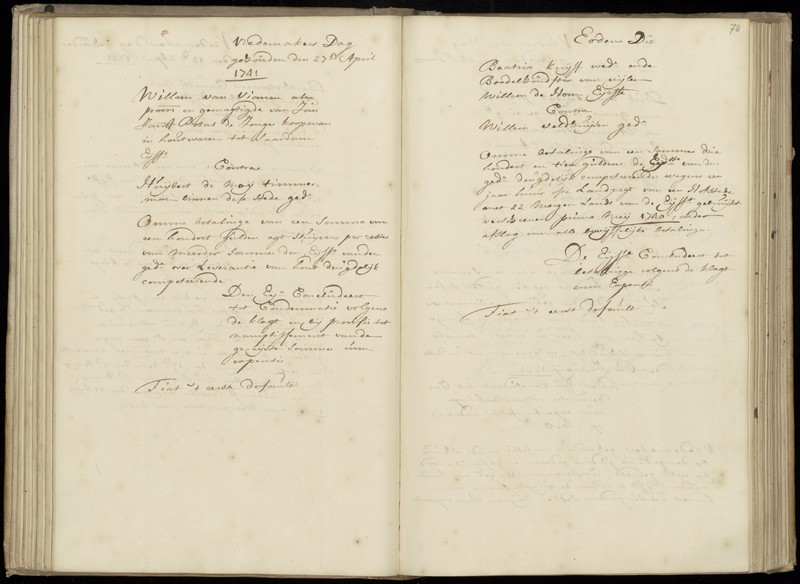 Vredemakers Dag
gehouden den 27en April
1741
Willem van Vianen als
procr en gemagtigde van Jan
de Jonge koopman
in houtwaren tot Saardam
Eijssr
Contra
Huijbert de Mooij timmer,
man binnen dese stede gedn
Omme betalinge van een somma van
een hondert gulden agt stuijvers per reste
van meerder somme den Eijssr van den
gedn over Leverantie van hout deugdelijk
competerende
Den Eijsr Concludeert
tot Condemnatie volgens
de klagt en bij provisie tot
namptissement van de
geeijste somme cum
expensis
Fiat 't eerste default
74
Eodem Die
Beatrix Kuijff wede ende
Boedelhoudster van wijlen
Willem de Horn Eijsse
Contra
Willem Veldhuijsen gedn
Omme betalinge van een somme drie
hondert en tien guldens de Eijsse van den
gedn deugdelijk competerende wegens een
jaar huur Landpagt van een Hofstede
met 22 Morgen Lands van de Eijsse gebruijkt
verscheenen primo Meij 1740, onder
aftrag van alle bewijsselijke betalinge
De Eijsse Concludeert tot
betalinge volgens de klagt
cum Expensis
Fiat 't eerste default